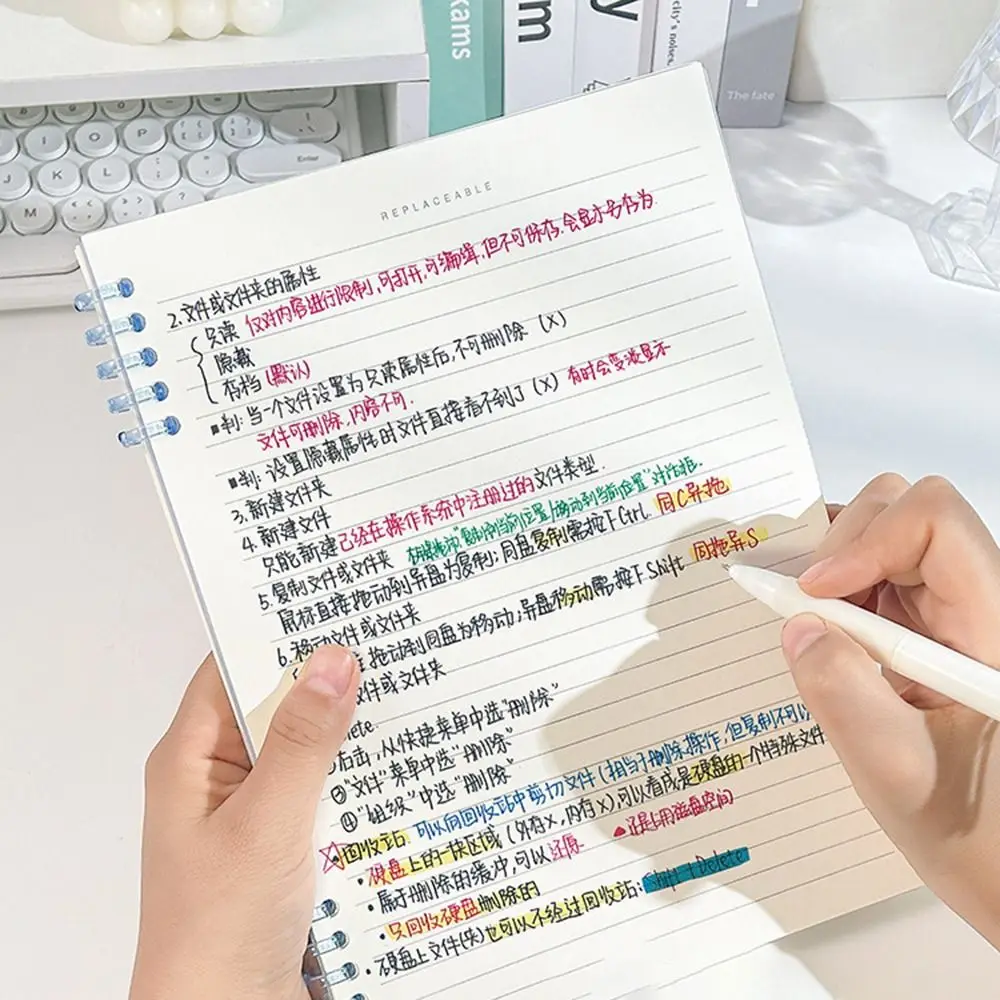 kams
m
y
city's noises
The fate
I
O
P
J
K
L
M
Enter
REPLACEABLE
2.文件或文件夹的属性
只读 仅对内容进行限制,可打开,可编辑,但不可保存.会显示另存为.
隐藏
存档(默认)
■判:当一个文件设置为只读属性后,不可删除 (X)
文件可删除,内容不可.
■判:设置隐藏属性的文件直接看不到了 (X) 有时会变淡显示
3.新建文件夹
4.新建文件
只能新建已经在操作系统中注册过的文件类型.
5.复制文件或文件夹 "复制到当前位置/移动到当前位置"对话框.
鼠标直接拖动到异盘为复制;同盘复制需按下Ctrl. 同C异拖
6.移动文件或文件夹
拖动到同盘为移动;异盘移动需按下Shift 同拖异S
文件或文件夹
右击,从快捷菜单中选"删除"
③"文件"菜单中选"删除"
④"组织"中选"删除"
回收站: 可以向回收站中剪切文件(相当于删除操作,但复制不可以
•硬盘上的一块区域(外存X,内存X),可以看成是硬盘的一个特殊文件
•属于删除的缓冲,可以还原 ▲还是占用磁盘空间
•只回收硬盘删除的
•硬盘上文件(夹)也可以不经过回收站:Shift+Delete